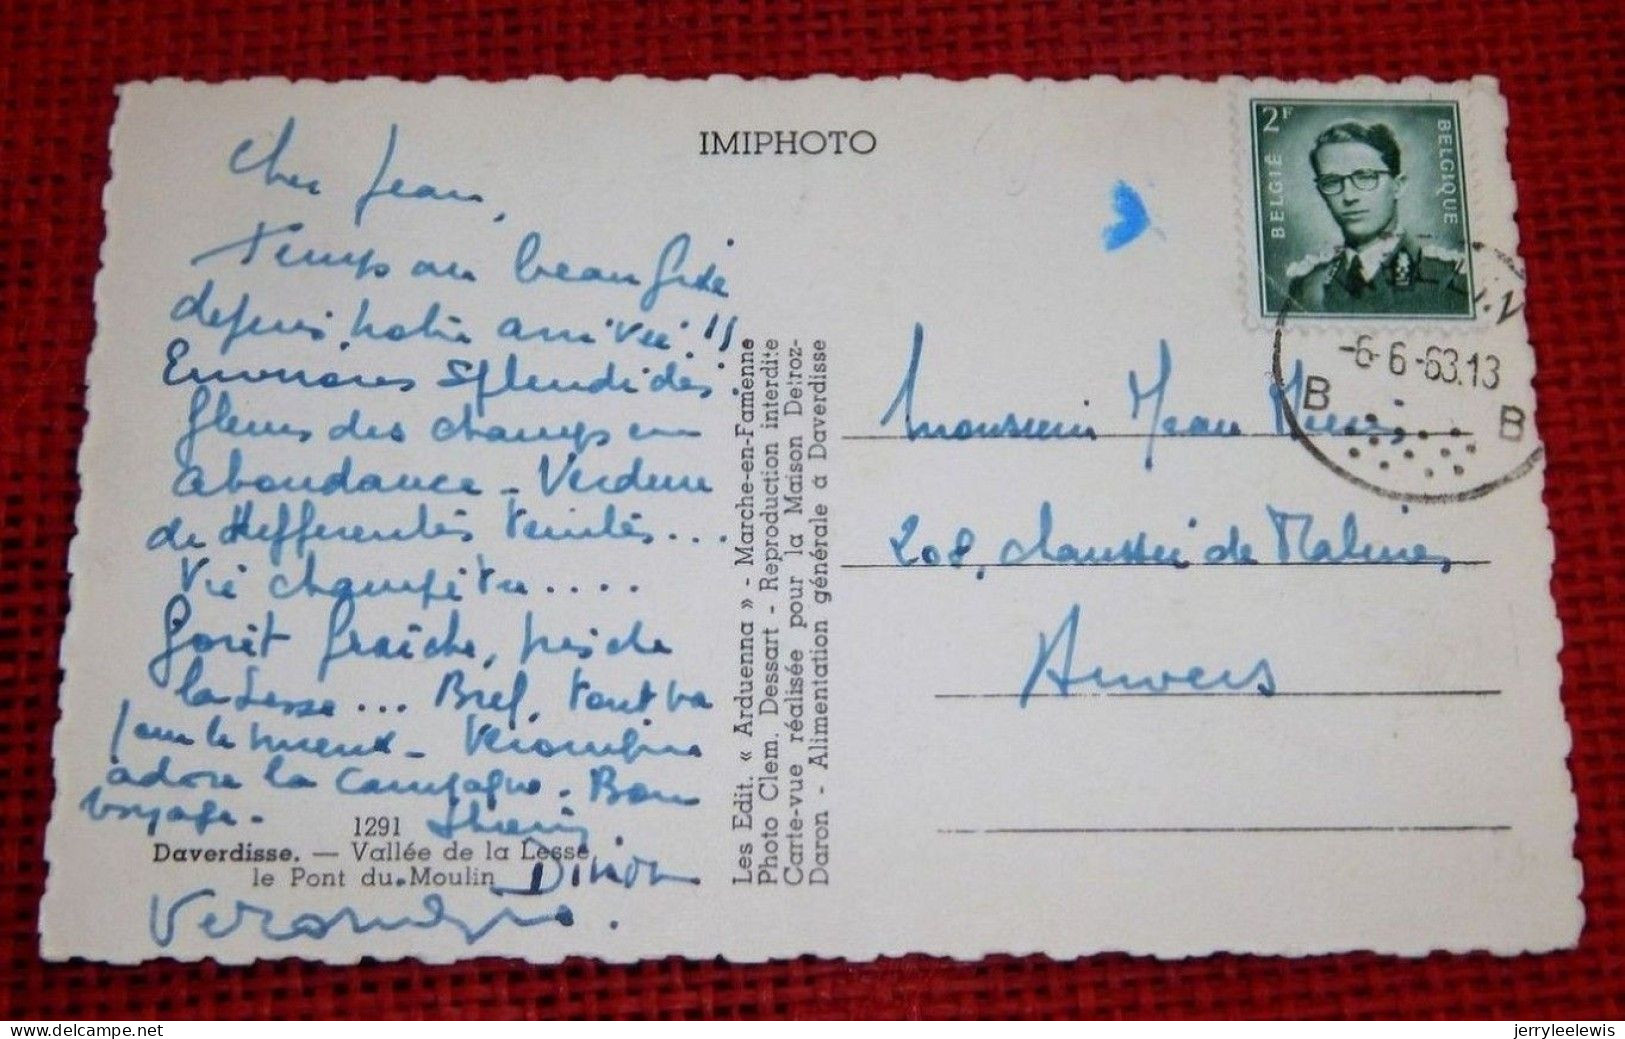 IMIPHOTO
2F
BELGIË
BELGIQUE
-6-6-63.13
B B
Cher Jean,
Temps au beau fixe
depuis notre arrivée!!
Environs splendides
fleurs des champs en
abondance - Verdure
de differentes teintes...
Vie champêtre....
Forêt fraîche, près de
la Lesse... Bref, tout va
pour le mieux - Veronique
adore la campagne. Bon
voyage.
1291
Daverdisse. — Vallée de la Lesse
le Pont du Moulin
Veronique.
Les Edit. « Arduenna » - Marche-en-Famenne
Photo Clem. Dessart - Reproduction interdite
Carte-vue réalisée pour la Maison Detroz-
Daron - Alimentation générale à Daverdisse
Monsieur Jean
208, chaussée de Malines,
Anvers
jerryleelewis
www.delcampe.net